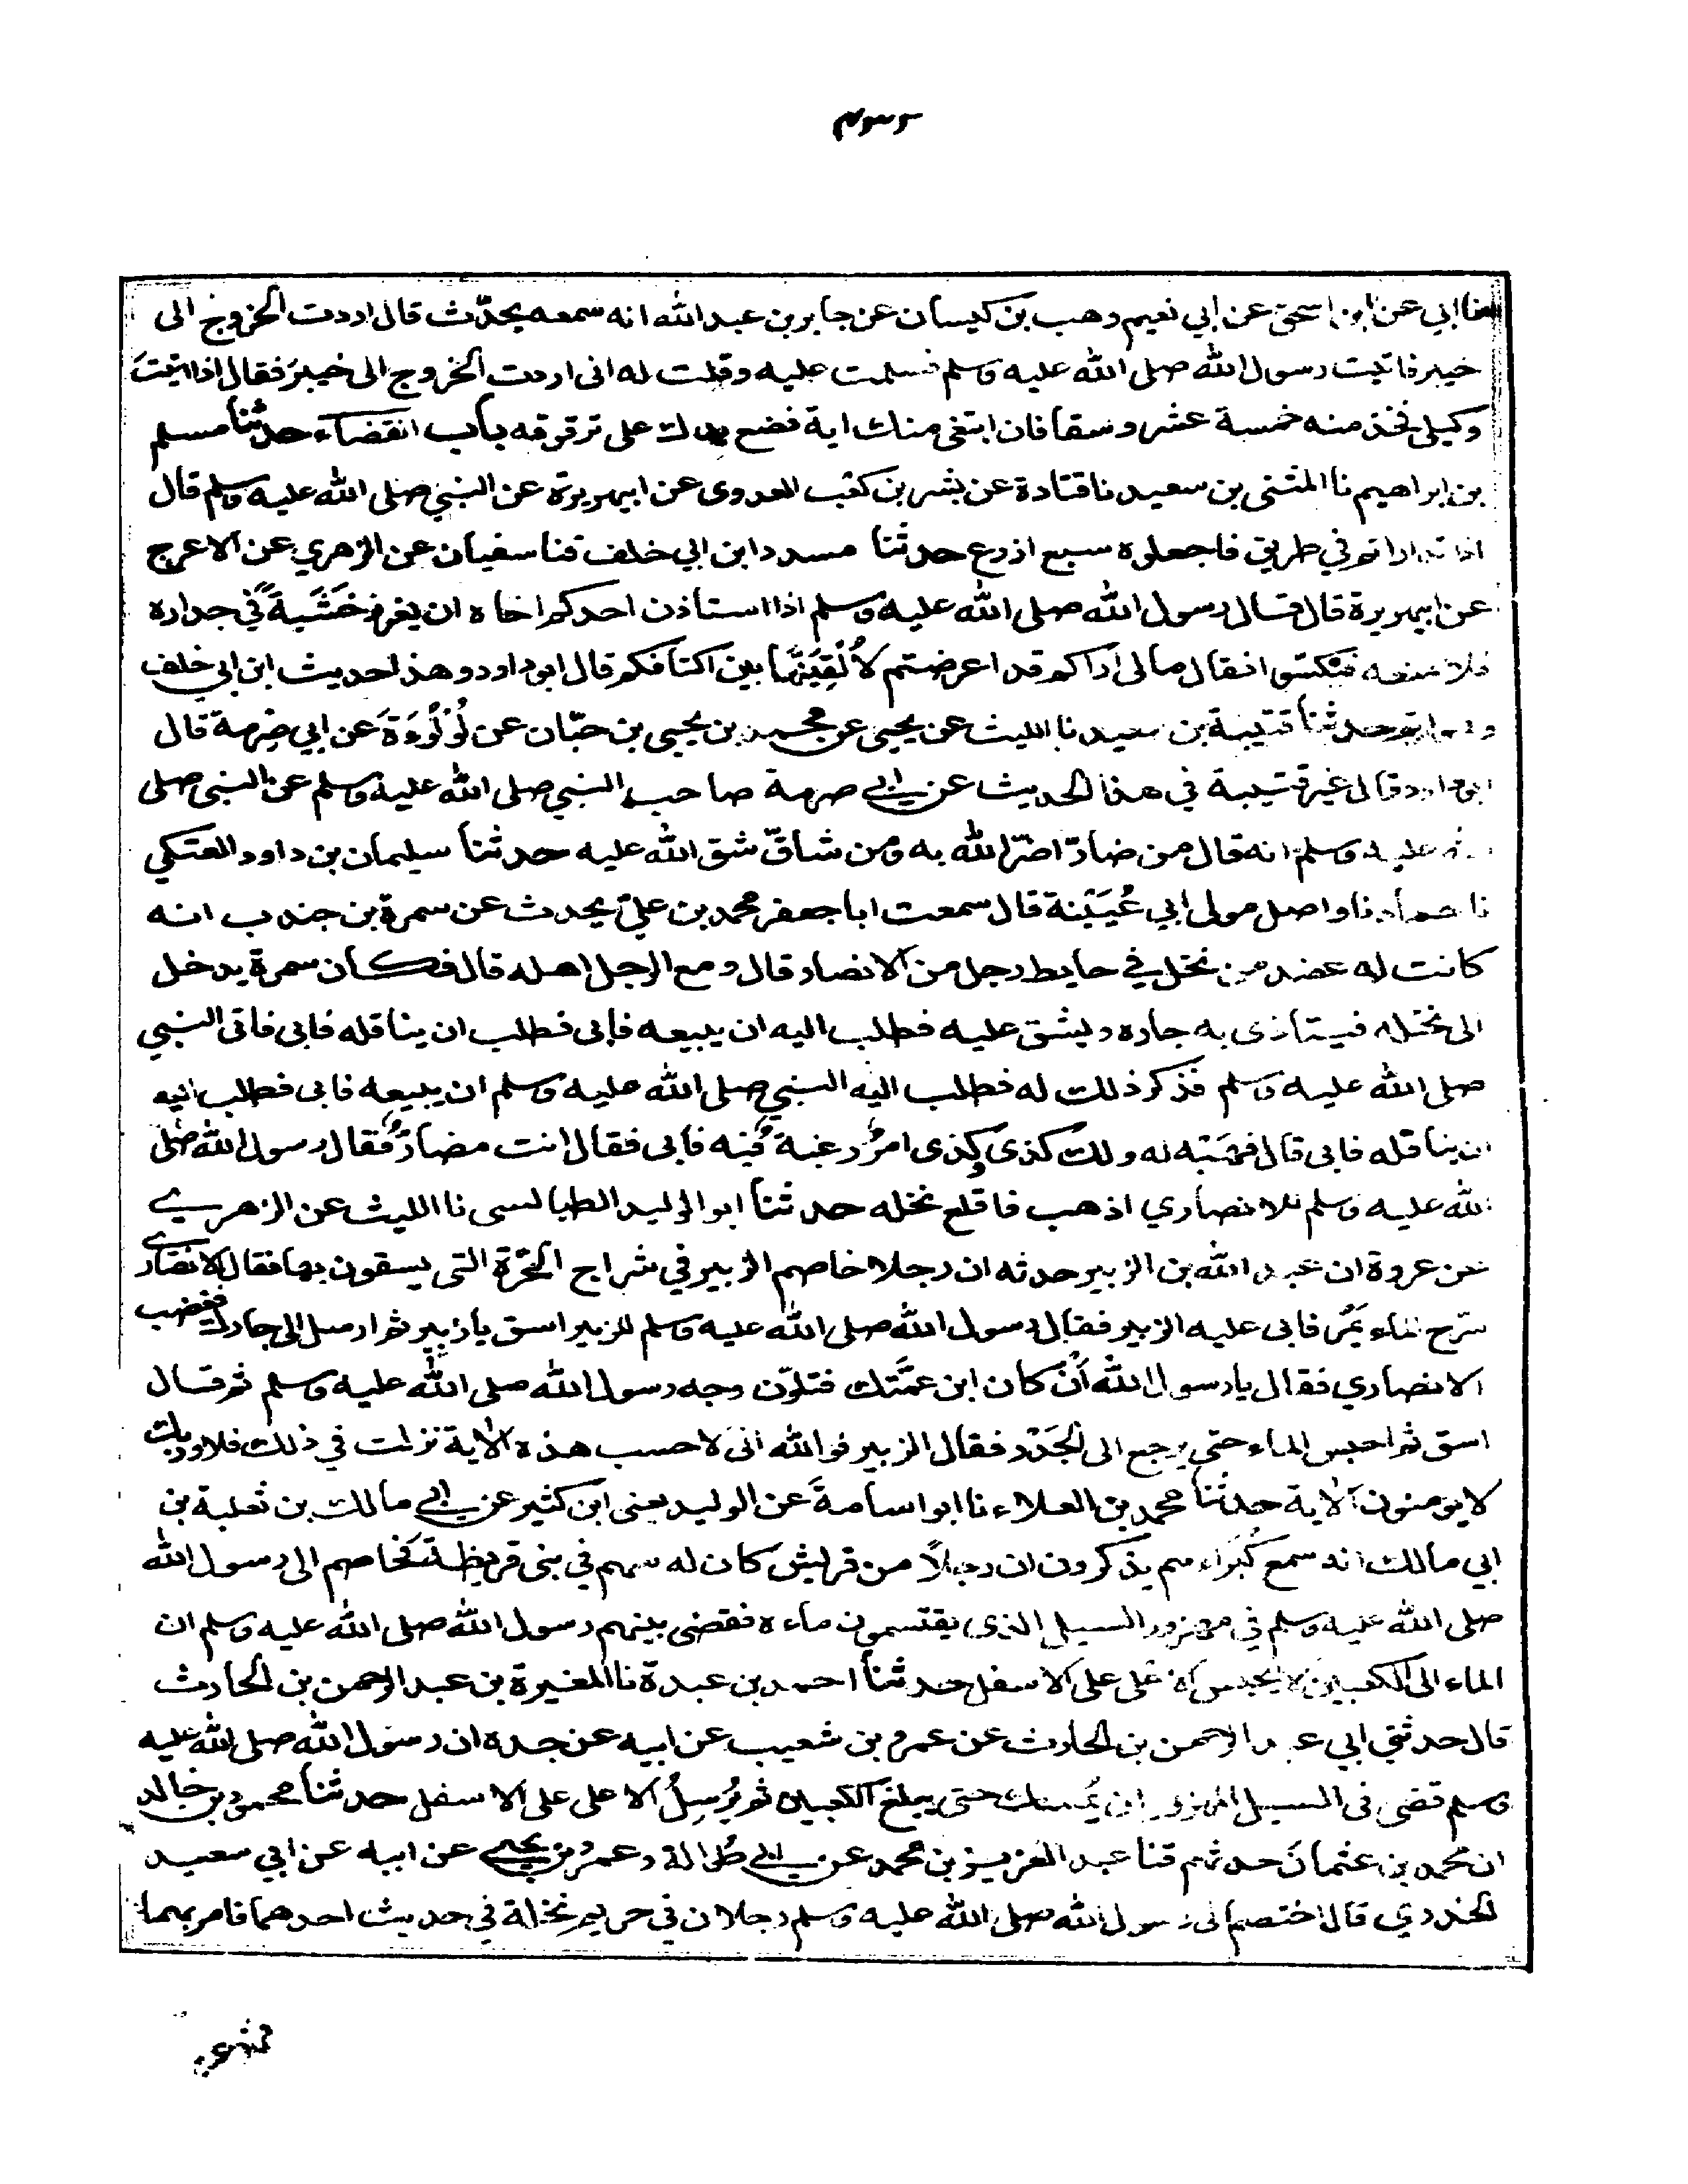 نا ابي عن ابن اسحق عن ابي نعيم وهب بن كيسان عن جابر بن عبد الله انه سمعه يحدّث قال اردت الخروج الى
خيبر فاتيت رسول الله صلى الله عليه وسلم فسلمت عليه وقلت له اني اردت الخروج الى خيبرَ فقال اذا اتيتَ
وكيلي فخذ منه خمسة عشر وسقا فان ابتغى منك اية فضع يدك على ترقوته باب القضاء حدثنا مسلم
بن ابراهيم نا المثنى بن سعيد نا قتادة عن بشر بن كعْب العدوى عن ابيهريرة عن النبي صلى الله عليه وسلم قال
اذا تداراتم في طريق فاجعلوه سبع اذرع حدثنا مسدد وابن ابي خلف قنا سفيان عن الزهري عن الاعرج
عن ابيهريرة قال قال رسول الله صلى الله عليه وسلم اذا استاذن احدكم اخاه ان يغرز خَشَبَةً في جداره
فلا يمنعه فنكسوا فقال ما لى اراكم قد اعرضتم لاُلْقِيَنَّها بين اكتافكم قال ابو داود وهذا حديث ابن ابي خلف
وهو اتم حدثنا قتيبة بن سعيد نا الليث عن يحيى عن محمد بن يحيى بن حبّان عن لُؤْلُوَةَ عن ابي صِرمة قال
ابو داود قال غير قتيبة في هذا الحديث عن ابي صرمة صاحب النبي صلى الله عليه وسلم عن النبي صلى
الله عليه وسلم انه قال من ضارّ اضرّ الله به ومن شاقّ شق الله عليه حدثنا سليمان بن داود العتكي
نا حماد نا واصل مولى ابي عُيَيْنة قال سمعت ابا جعفر محمد بن عليّ يحدث عن سمرة بن جندب انه
كانت له عضد من نخل في حايط رجل من الانصار قال ومع الرجل اهله قال فكان سمرة يدخل
الى نخله فيتاذى به جاره ويشق عليه فطلب اليه ان يبيعه فابى فطلب ان يناقله فابى فاتى النبي
صلى الله عليه وسلم فذكر ذلك له فطلب اليه النبي صلى الله عليه وسلم ان يبيعه فابى فطلب اليه
ان يناقله فابى قال فهَبْه له ولك كذى وكذى امرُ رغبةً فيه فابى فقال انت مضارٌّ فقال رسول الله صلى
الله عليه وسلم للانصاري اذهب فاقلع نخله حدثنا ابو الوليد الطيالسى نا الليث عن الزهري
عن عروة ان عبد الله بن الزبير حدثه ان رجلا خاصم الزبير في شراج الحَرّة التي يسقون بها فقال الانصاري
سَرّح الماء يَمُرّ فابى عليه الزبير فقال رسول الله صلى الله عليه وسلم للزبير اسق يا زبير ثم ارسل الى جارك فغضب
الانصاري فقال يا رسول الله أَنْ كان ابن عمَّتك فتلوّن وجه رسول الله صلى الله عليه وسلم ثم قال
اسق ثم احبس الماء حتى يرجع الى الجَدْر فقال الزبير فوالله اني لاحسب هذه الاية نزلت في ذلك فلا وربك
لا يومنون الاية حدثنا محمد بن العلاء نا ابو اسامةَ عن الوليد يعنى ابن كثير عن ابي مالك بن ثعلبة بن
ابي مالك انه سمع كُبَراءهم يذكرون ان رجلاً من قريش كان له سهم في بني قريظة فخاصم الى رسول الله
صلى الله عليه وسلم في مهزور السيل الذي يقتسمون ماءه فقضى بينهم رسول الله صلى الله عليه وسلم ان
الماء الى الكعبين لا يحبس الاعلى على الاسفل حدثنا احمد بن عبدة نا المغيرة بن عبد الرحمن بن الحارث
قال حدثني ابي عبد الرحمن بن الحارث عن عمرو بن شعيب عن ابيه عن جده ان رسول الله صلى الله عليه
وسلم قضى في السيل المهزور ان يُمسك حتى يبلغ الكعبين ثم يُرسِلُ الاعلى على الاسفل حدثنا محمود بن خالد
ان محمد بن عثمانَ حدثهم قنا عبد العزيز بن محمد عن ابي طُوالة وعمرو بن يحيى عن ابيه عن ابي سعيد
الخدري قال اختصم الى رسول الله صلى الله عليه وسلم رجلان في حريم نخلة في حديث احدهما فامر بهما